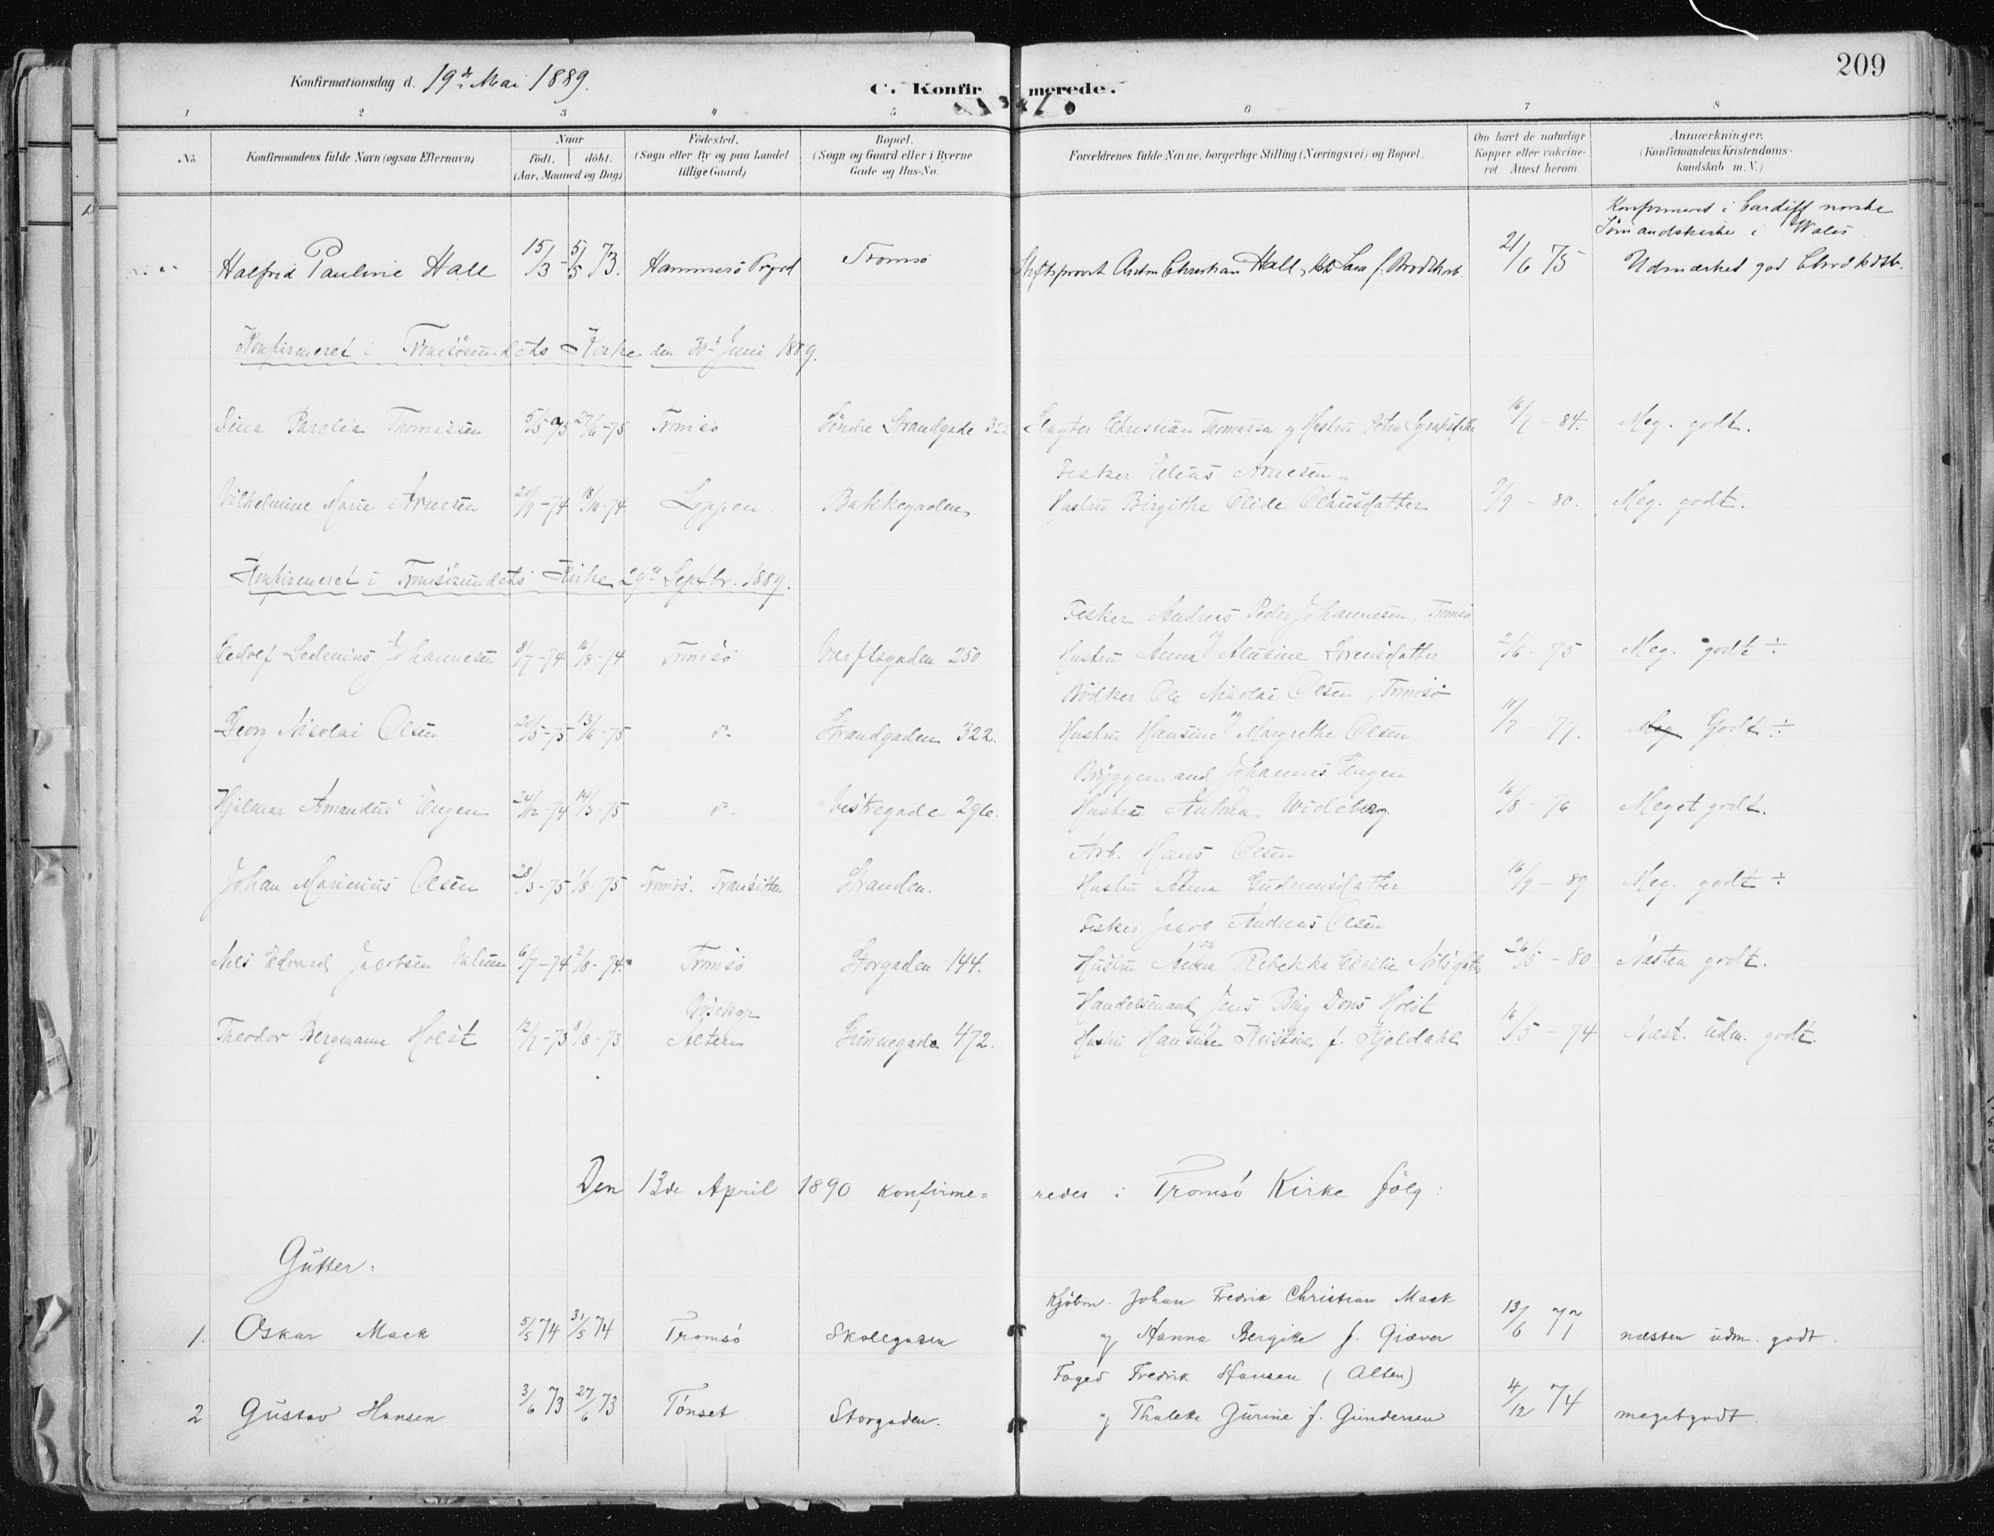 209
Konfirmationsdag d. 19de Mai 1889.
C. Konfirmerede.
1 2 3 4 5 6 7 8
No. Konfirmandens fulde Navn (ogsaa Efternavn) Naar født, døbt. (Aar, Maaned og Dag) Fødested. (Sogn eller By og paa Landet tillige Gaard) Bopæl. (Sogn og Gaard eller i Byerne Gade og Hus-No. Forældrenes fulde Navne, borgerlige Stilling (Næringsvei) og Bopæl. Om havt de naturlige Kopper eller vakcineret. Attest herom. Anmærkninger. (Konfirmandens Kristendomskundskab m. V.)
Konfirmeret i Cardiff norske
Sømandskirke i Wales.
Halfrid Pauline Hall 15/3 - 5/5 73. Hammersø Prgrd Tromsø Stiftsprovst Anton Christian Hall, Lara f. 21/6 75 Udmærket god
Konfirmeret i Tromsøsundets Kirke den 30te Juni 1889.
Dina Parelia Thomassen 5/5-75 27/6-75 Tromsø Søndre Strandgade Christian Thomassen og Hustru 16/7 - 84. Meg. godt.
Fisker Elias Arnesen og
Vilhelmine Marie Arnesen 20/9-74 18/10-74 Loppen. Bakkegaden Hustru Birgithe Olide Olausdatter 9/9 - 80. Meg. godt.
Konfirmeret i Tromsøsundets Kirke 29de Septbr. 1889.
Fisker Andreas Peder Johannesen, Tromsø
Johannesen 8/7-74 16/8-74 Tromsø Verftsgaden 250 Hustru Anna Lorensdatter 2/6 - 75 Meg. godt ÷
Bødker Ole Nikolai Olsen, Tromsø
Georg Nikolai Olsen 20/5-75 13/6-75 Strandgaden 322. Hustru Hansine Margrethe Olsen 11/7 - 77. Meg Godt ÷
Bryggemand Johannes Engen
Hjalmar Amandus Engen 24/12-74 14/3-75 Vestregade 296. Hustru Antona Wideberg 16/8 - 76 Meget godt.
Arb. Hans Olsen
Johan Marinius Olsen 28/3-75 1/8-75 Tromsø. Stranden. Hustru Anna Gudmunsdatter 16/9 - 89 Meg. godt ÷
Fisker Jacob Andreas Olsen
Nils Edvard Jacobsen 6/7-74 2/8-74. Tromsø Storgaden 144. Hustru Anna Rebekka Cecilie Nilsdatter 26/5 - 80 Næsten godt.
Handelsmand Jens Bing Dons Holst
Theodor Bergmann Holst 12/7-73 8/8-73 Bosekop Alten Grønnegade 472. Hustru Hansine Kristine f. Kjeldahl 16/5 - 74 Næst. udm. godt.
Den 13de April 1890 konfirmeredes i Tromsø Kirke følg:
Gutter:
Kjøbm. Johan Fredrik Christian Mack
1. Oskar Mack 5/5 74 31/5 74 Tromsø Skolegaden og Hanna Bergitte f. Giæver 13/6 77 næsten udm. godt.
Foged Fredrik Hansen (Alten)
2 Gustav Hansen 3/6 73 27/6 73 Tønset Storgaden. og Thaleke Gurine f. Gundersen 4/12 74 meget godt.